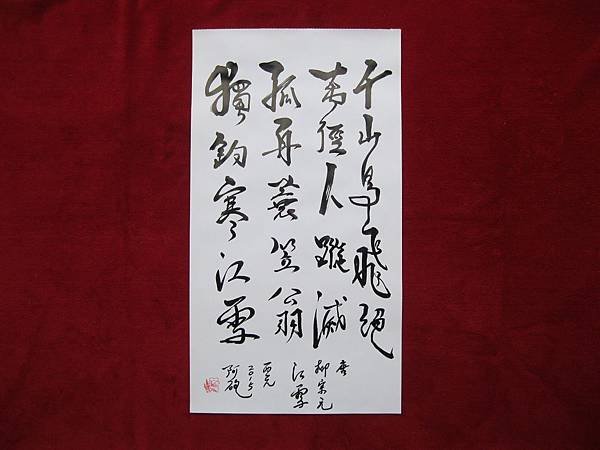 千山鳥飛絕
萬徑人蹤滅
孤舟蓑笠翁
獨釣寒江雪
唐
柳宗元
江雪
西元